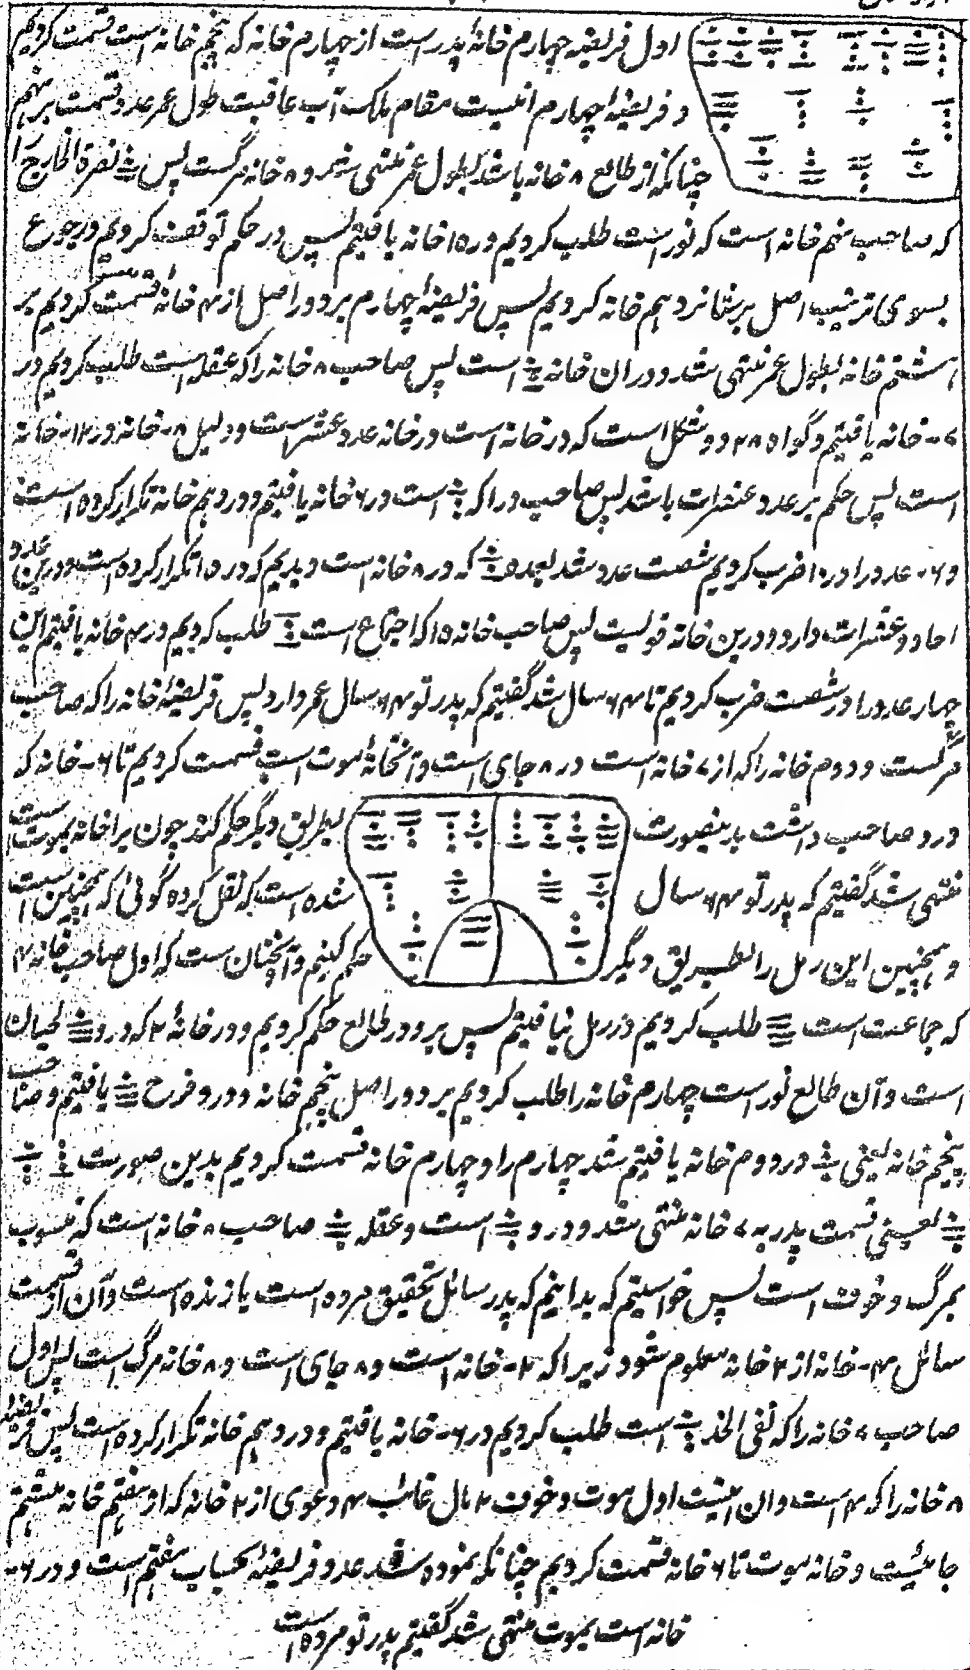 اول فریضه چهارم خانهٔ پدر است از چهارم خانه که پنجم خانه است قسمت کردیم
و فریضهٔ چهارم اینست مقام ملک آب عاقبت طول عمر عدو قسمت بر نهم
چنانکه از طالع ۸ خانه باشد بطول عمر منتهی شد و ۸ خانه مرگست پس نصرة الخارج را
که صاحب نهم خانه است که نور است طلب کردیم در ۱۵ خانه یافتیم پس در حکم توقف کردیم و رجوع
بسوی ترتیب اصل پر پانزدهم خانه کردیم پس فریضهٔ چهارم بر دور اصل از ۴ خانه قسمت کردیم بر
هشتم خانه بطول عمر منتهی شد و در ان خانه است پس صاحب ۸ خانه را که عقله است طلب کردیم در
۷ خانه یافتیم و گواه ۸ ۲ دو شکل است که در خانه است و در خانه عدد عشرات است و دلیل ۸ خانه در ۱۲ خانه
است پس حکم بر عدد عشرات باشد پس صاحب را که است در ۶ خانه یافتیم و در دهم خانه تکرار کرده است
و ۶ عدد را در ۱۰ ضرب کردیم شصت عدد شد بعده که در ۸ خانه است دیدیم که در ۱۵ تکرار کرده است و درین عدد
احاد و عشرات دارد و درین خانه قویست پس صاحب خانه ۱۵ که اجتماع است طلب کردیم در ۴ خانه یافتیم این
چهار عدد را در شصت ضرب کردیم تا ۶۴ سال شد گفتیم که پدر تو ۶۴ سال عمر دارد پس فریضهٔ خانه را که صاحب
مرگست و دوم خانه را که از ۷ خانه است در ۸ جای است و آنخانهٔ موت است قسمت کردیم تا ۶ خانه که
درو صاحب داشت بدینصورت بطریق دیگر حکم کنند چون برا خانه بموت است
منتهی شد گفتیم که پدر تو ۶۴ سال شده است که نقل کرده گوئی که همچنین است
و همچنین این رمل را بطریق دیگر حکم کنیم و آنچنان است که اول صاحب خانه ۴
که جماعت است طلب کردیم در رمل نیافتیم پس بر دور طالع حکم کردیم و در خانهٔ ۲ که درو لحیان
است و آن طالع نور است چهارم خانه را طلب کردیم بر دور اصل پنجم خانه و درو فرح یافتیم و صاحب
پنجم خانه یعنی در دوم خانه یافتیم شد چهارم را و چهارم خانه قسمت کردیم بدین صورت
یعنی قسمت پدر به ۷ خانه منتهی شد و درو است و عقله صاحب ۸ خانه است که منسوب
بمرگ و خوف است پس خواستیم که بدانیم که پدر سائل تحقیق مرده است یا زنده است و آن از قسمت
سائل ۴ خانه از ۲ خانه معلوم شود زیرا که ۲ خانه است و ۸ جای است و ۸ خانه مرگ است پس اول
صاحب ۷ خانه را که نقی الخد است طلب کردیم در ۶ خانه یافتیم و در دهم خانه تکرار کرده است پس فریضهٔ
۸ خانه را که ۴ است و ان اینست اول موت و خوف ۲ مال غائب ۴ دعوی از ۲ خانه که از هفتم خانه هشتم
جائیست و خانه موت تا ۶ خانه قسمت کردیم چنانکه نموده شد عدد فریضهٔ بحساب هفتم است و در ۶
خانه است بموت منتهی شد گفتیم پدر تو مرده است